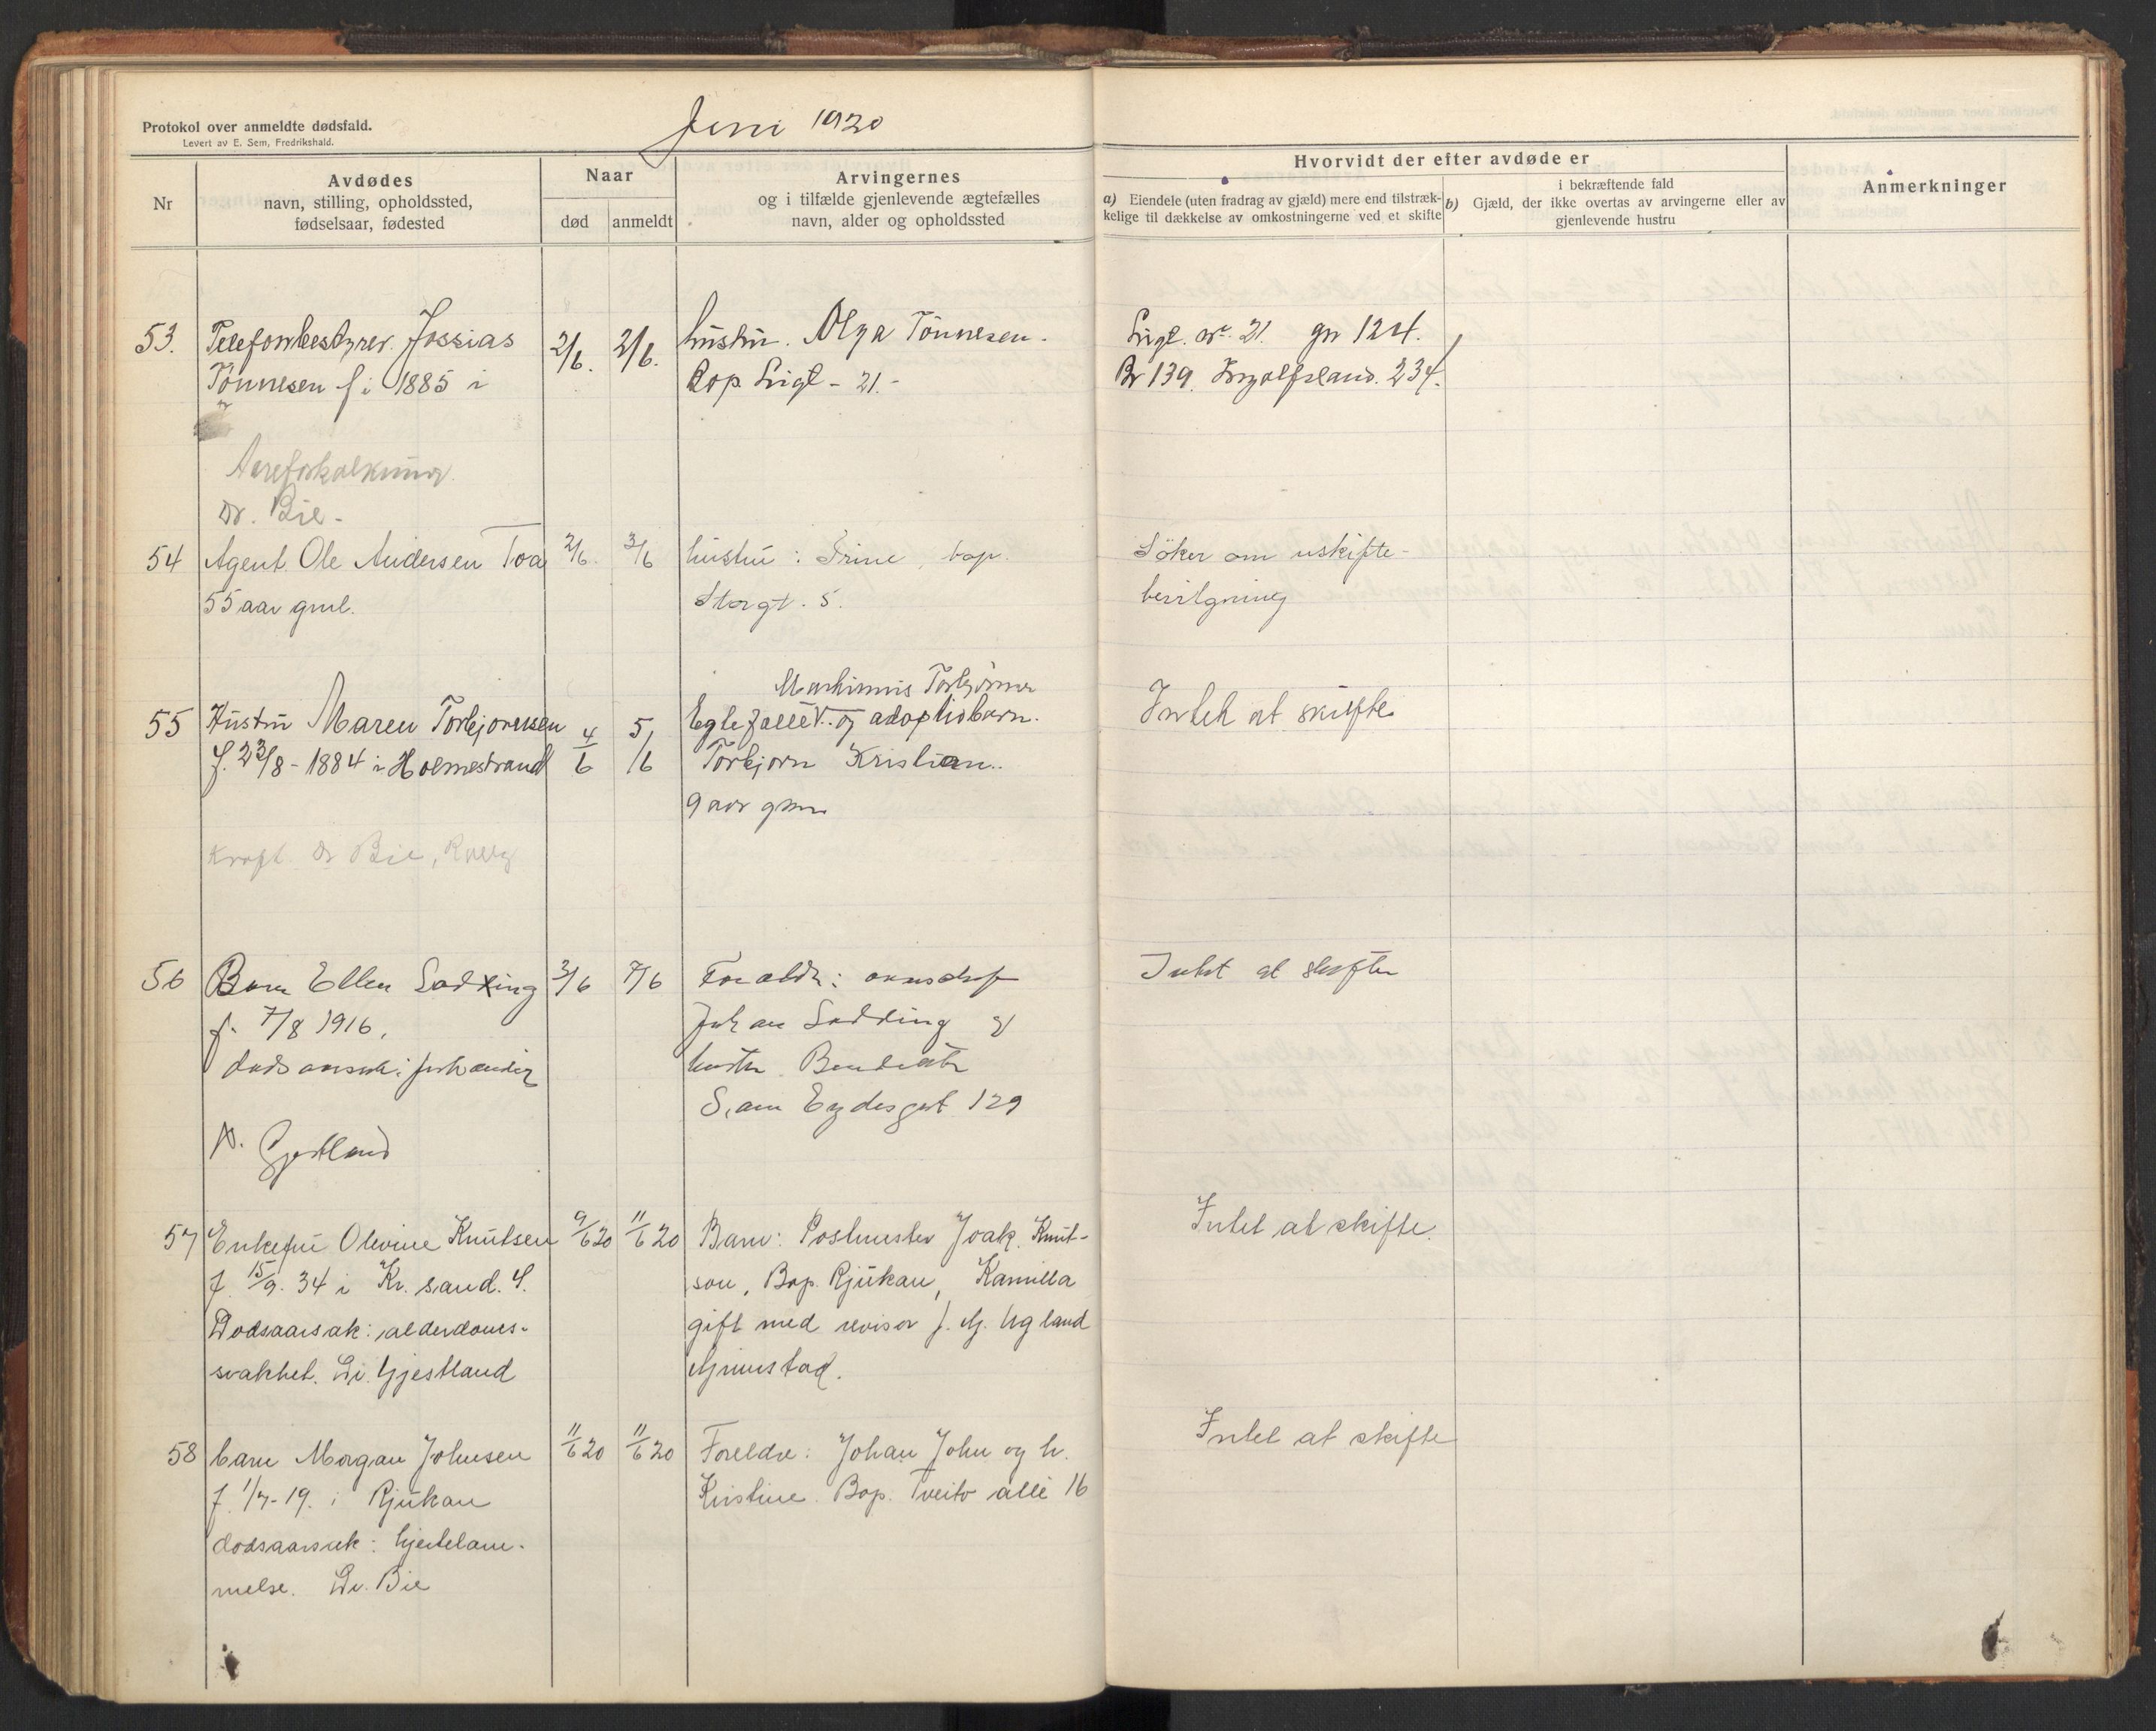 Juni 1920
Protokol over anmeldte dødsfald.
Levert av E. Sem, Fredrikshald.
Nr
Avdødes
navn, stilling, opholdssted,
fødselsaar, fødested
Naar
død
anmeldt
Arvingernes
og i tilfælde gjenlevende ægtefælles
navn, alder og opholdssted
Hvorvidt der efter avdøde er
a) Eiendele (uten fradrag av gjæld) mere end tilstræk-
kelige til dækkelse av omkostningerne ved et skifte
i bekræftende fald
b) Gjæld, der ikke overtas av arvingerne eller av
gjenlevende hustru
Anmerkninger
53. Telefonbestyrer Jossias
Tönnesen f i 1885 i
Aareforkalkning
Dr. Bie -
2/6. 2/6.
hustru. Olga Tönnesen.
Bop. - 21. -
21. gn 124.
Br 139. Ingolfsland. 234.
54 Agent Ole Andersen Toa
55 aar gml.
2/6. 3/6
hustru: Trine, bop.
Storgt. 5.
Söker om uskifte-
bevilgning
55 Hustru Maren Torbjørnsen
f. 23/8 - 1884 i Holmestrand
Kræft Dr Bie,
4/6 5/6
Maskinmis Torbjørnsen
Egtefælle og adoptivbarn.
Torbjørn Kristian.
9 aar gml
Intet at skifte
56 Barn Ellen Lodding
f. 7/8 1916.
dødsaarsak:
Dr. Gjestland
3/6 7/6
Foreldr:
Johan Lodding og
hustru
Sam Eydesgat 129
Intet at skifte
57 Enkefru Olevine Knutsen
f. 15/9. 34 i Kr.sand. S.
Dødsaarsak: alderdoms-
svakhet. Dr. Gjestland
9/6 20 11/6 20
Barn: Postmester Joak. Knut-
son, Bop. Rjukan, Kamilla
gift med revisor J. G. Ugland
Grimstad.
Intet at skifte.
58 barn Morgan Johnsen
f. 1/7-19. i Rjukan
dødsaarsak: hjertelam-
melse. Dr. Bie
11/6 20 11/6 20
Foreldre: Johan John og h.
Kristine. Bop. Tveito alle 16
Intet at skifte